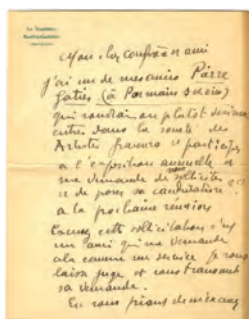 Mon cher confrère et ami
j'ai un de mes amis Pierre
Gatier (à Parmain S et Oise)
qui voudrait ou plutôt désire
entrer dans la société des
Artistes graveurs et participer
à l'exposition annuelle et
me demande de solliciter
et de poser sa candidature
à la prochaine réunion
Excusez cette sollicitation c'est
un ami qui me demande
cela comme un service je vous
laisse juge et vous transmets
sa demande.
En vous priant de m'excuser